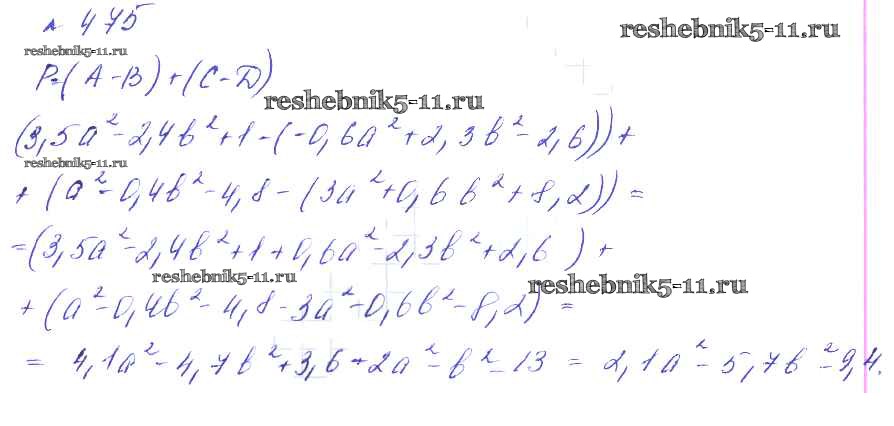 № 475
reshebnik5-11.ru
reshebnik5-11.ru
P=(A-B)+(C-D)
reshebnik5-11.ru
(3,5a²-2,4b²+1-(-0,6a²+2,3b²-2,6))+
reshebnik5-11.ru
+(a²-0,4b²-4,8-(3a²+0,6b²+8,2))=
=(3,5a²-2,4b²+1+0,6a²-2,3b²+2,6)+
reshebnik5-11.ru
reshebnik5-11.ru
+(a²-0,4b²-4,8-3a²-0,6b²-8,2)=
=4,1a²-4,7b²+3,6-2a²-b²-13=2,1a²-5,7b²-9,4.